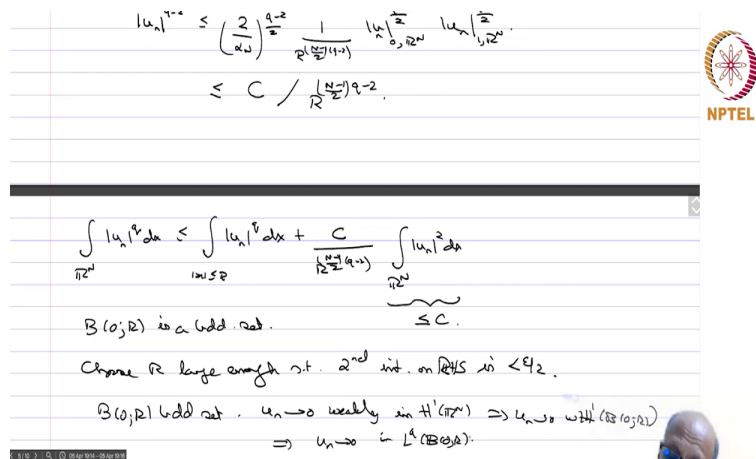 |u_n|^{q-2} ≤ (2/α_N)^{\frac{q-2}{2}} \frac{1}{R^{(\frac{N-1}{2})(q-2)}} |u_n|_{0,ℝ^N}^{\frac{}{2}} |u_n|_{1,ℝ^N}^{\frac{}{2}}
≤ C / R^{(\frac{N-1}{2})q-2}.
NPTEL
∫_{ℝ^N} |u_n|^q dx ≤ ∫_{|x|≤R} |u_n|^q dx + \frac{C}{R^{(\frac{N-1}{2})(q-2)}} ∫_{ℝ^N} |u_n|^2 dx
B(0;R) is a bdd. set. ≤ C.
Choose R large enough s.t. 2^{nd} int. on RHS is < ε/2.
B(0;R) bdd set. u_n → 0 weakly in H^1(ℝ^N) ⇒ u_n → 0 w H^1(B(0;R))
⇒ u_n → 0 in L^q(B(0;R)).
6 / 10 05 Apr 19:14 - 05 Apr 19:16